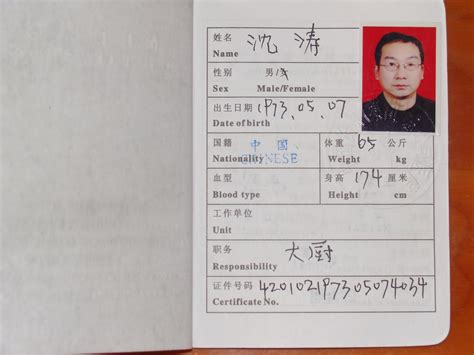 姓名 沈涛
Name
性别 男
Sex Male/Female
出生日期 1973.05.07
Date of birth
国籍 中国 体重 65 公斤
Nationality CHINESE Weight kg
血型 身高 174 厘米
Blood type Height cm
工作单位
Unit
职务 大厨
Responsibility
证件号码 420102197305074034
Certificate No.